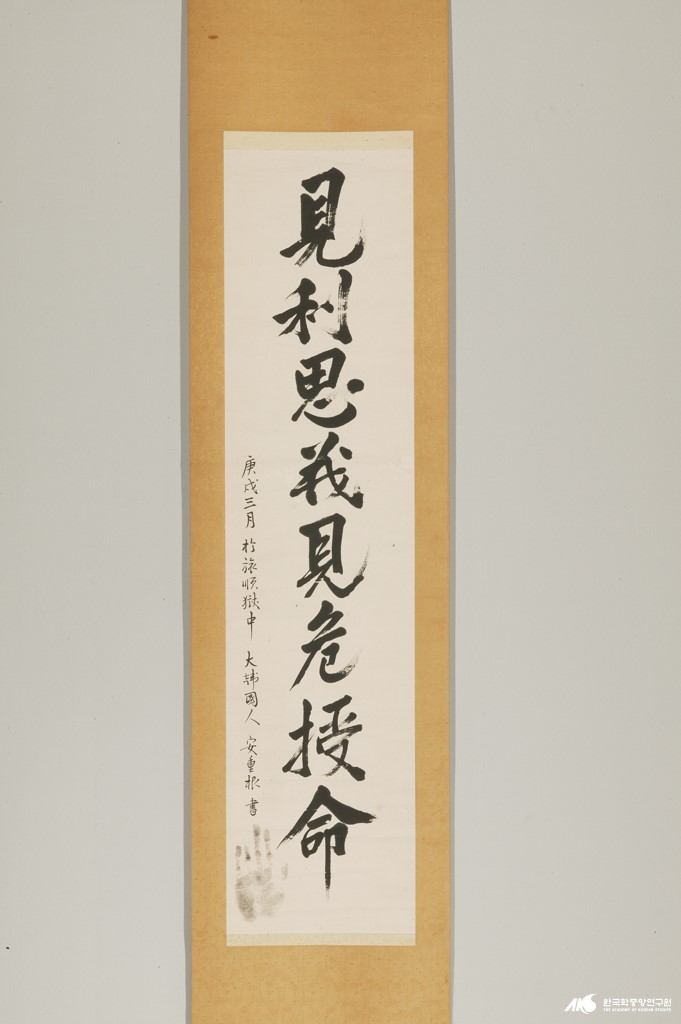 見利思義見危授命
庚戌三月 於旅順獄中 大韓國人 安重根 書
AKS 한국학중앙연구원
THE ACADEMY OF KOREAN STUDIES